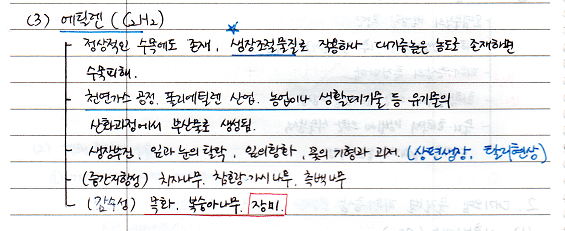 (3) 에틸렌 (C2H2)
- 정상적인 수목에도 존재, 생장조절물질로 작용하나 대기중높은 농도로 존재하면
수목피해.
- 천연가스 공정. 폴리에틸렌 산업. 농업이나 생활폐기물 등 유기물의
산화과정에서 부산물로 생성됨.
- 생장부진, 잎과 눈의 탈락, 잎의황화, 꽃의 기형과 괴저. (상편생장, 탈리현상)
- (중간저항성) 치자나무. 참호랑가시나무. 측백나무
- (감수성) 목화. 복숭아나무. 장미.